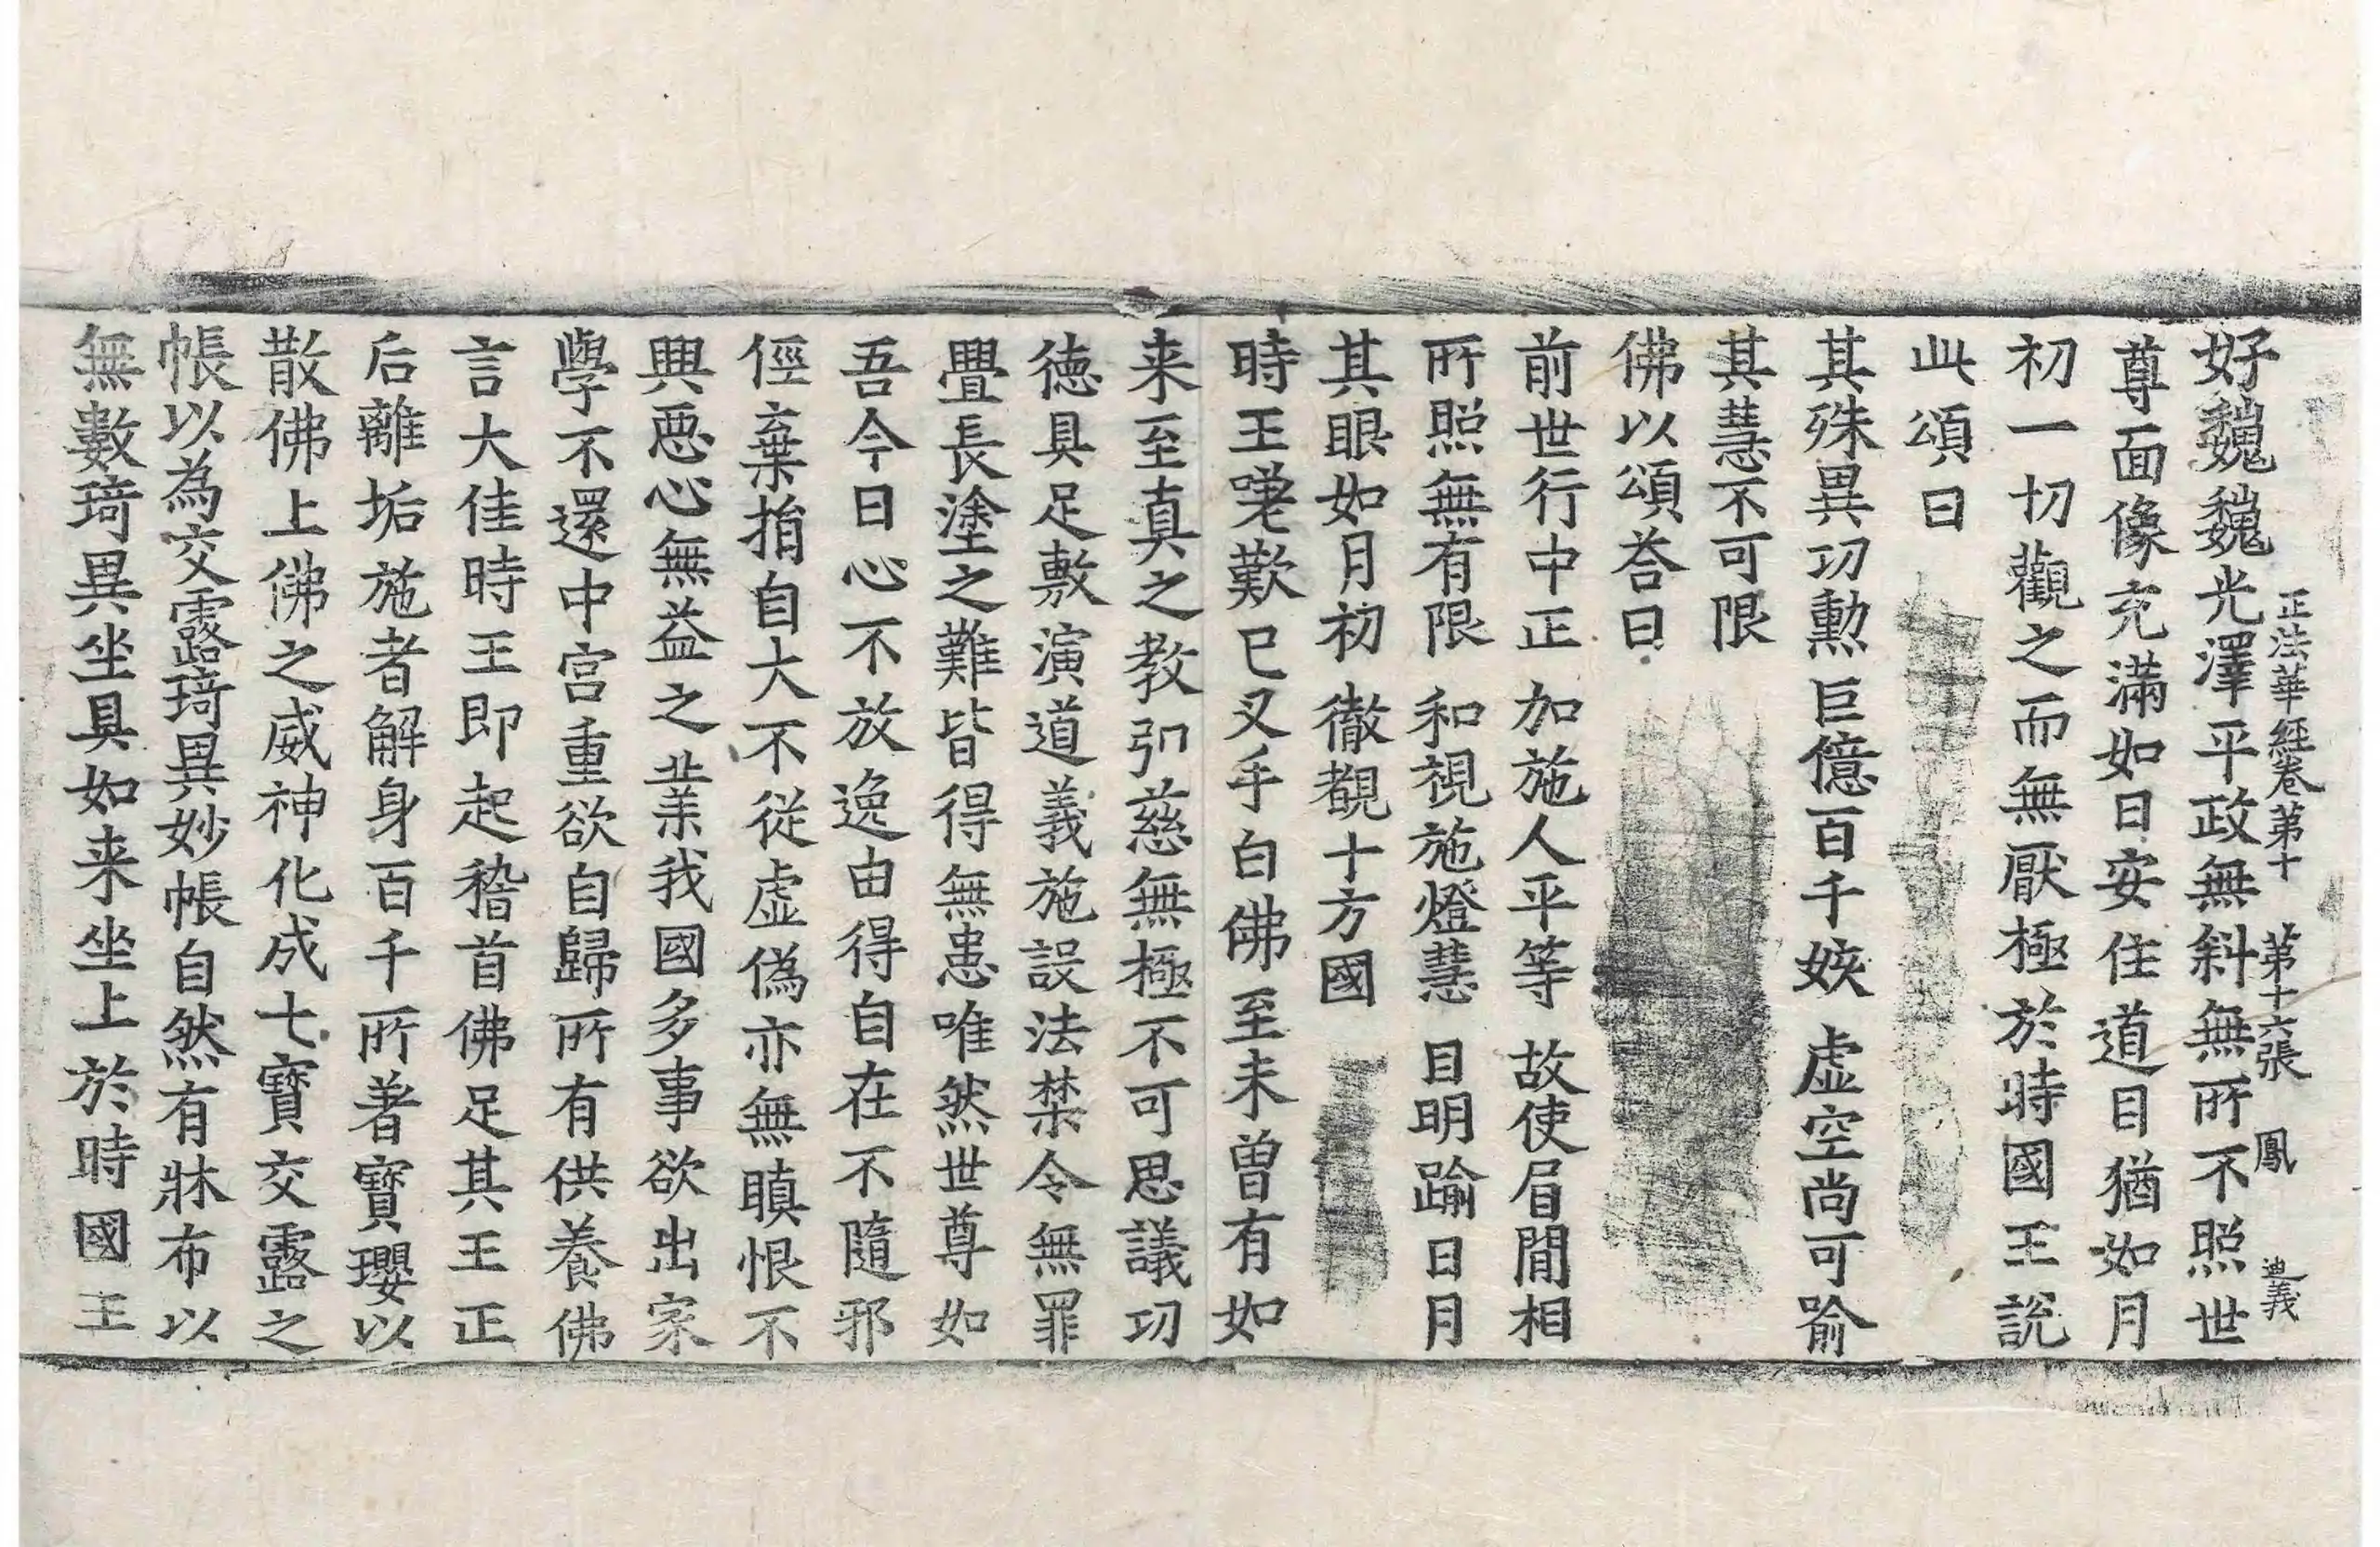 正法華經卷第十 第十六張 鳳 迪義
好巍巍光澤平政無斜無所不照世
尊面像充滿如日安住道目猶如月
初一切觀之而無厭極於時國王說
此頌曰
其殊異功勲 巨億百千姟 虛空尚可喻
其慧不可限
佛以頌荅曰
前世行中正 加施人平等 故使眉間相
所照無有限 和視施燈慧 目明踰日月
其眼如月初 徹覩十方國
時王嗟歎已叉手白佛至未曽有如
来至真之教弘慈無極不可思議功
徳具足敷演道義施設法禁令無罪
舋長塗之難皆得無患唯然世尊如
吾今日心不放逸由得自在不隨邪
俓棄捐自大不從虛偽亦無瞋恨不
興惡心無益之業我國多事欲出家
學不還中宫重欲自歸所有供養佛
言大佳時王即起稽首佛足其王正
后離垢施者解身百千所著寶瓔以
散佛上佛之威神化成七寶交露之
帳以為交露琦異妙帳自然有牀布以
無數琦異坐具如来坐上於時國王